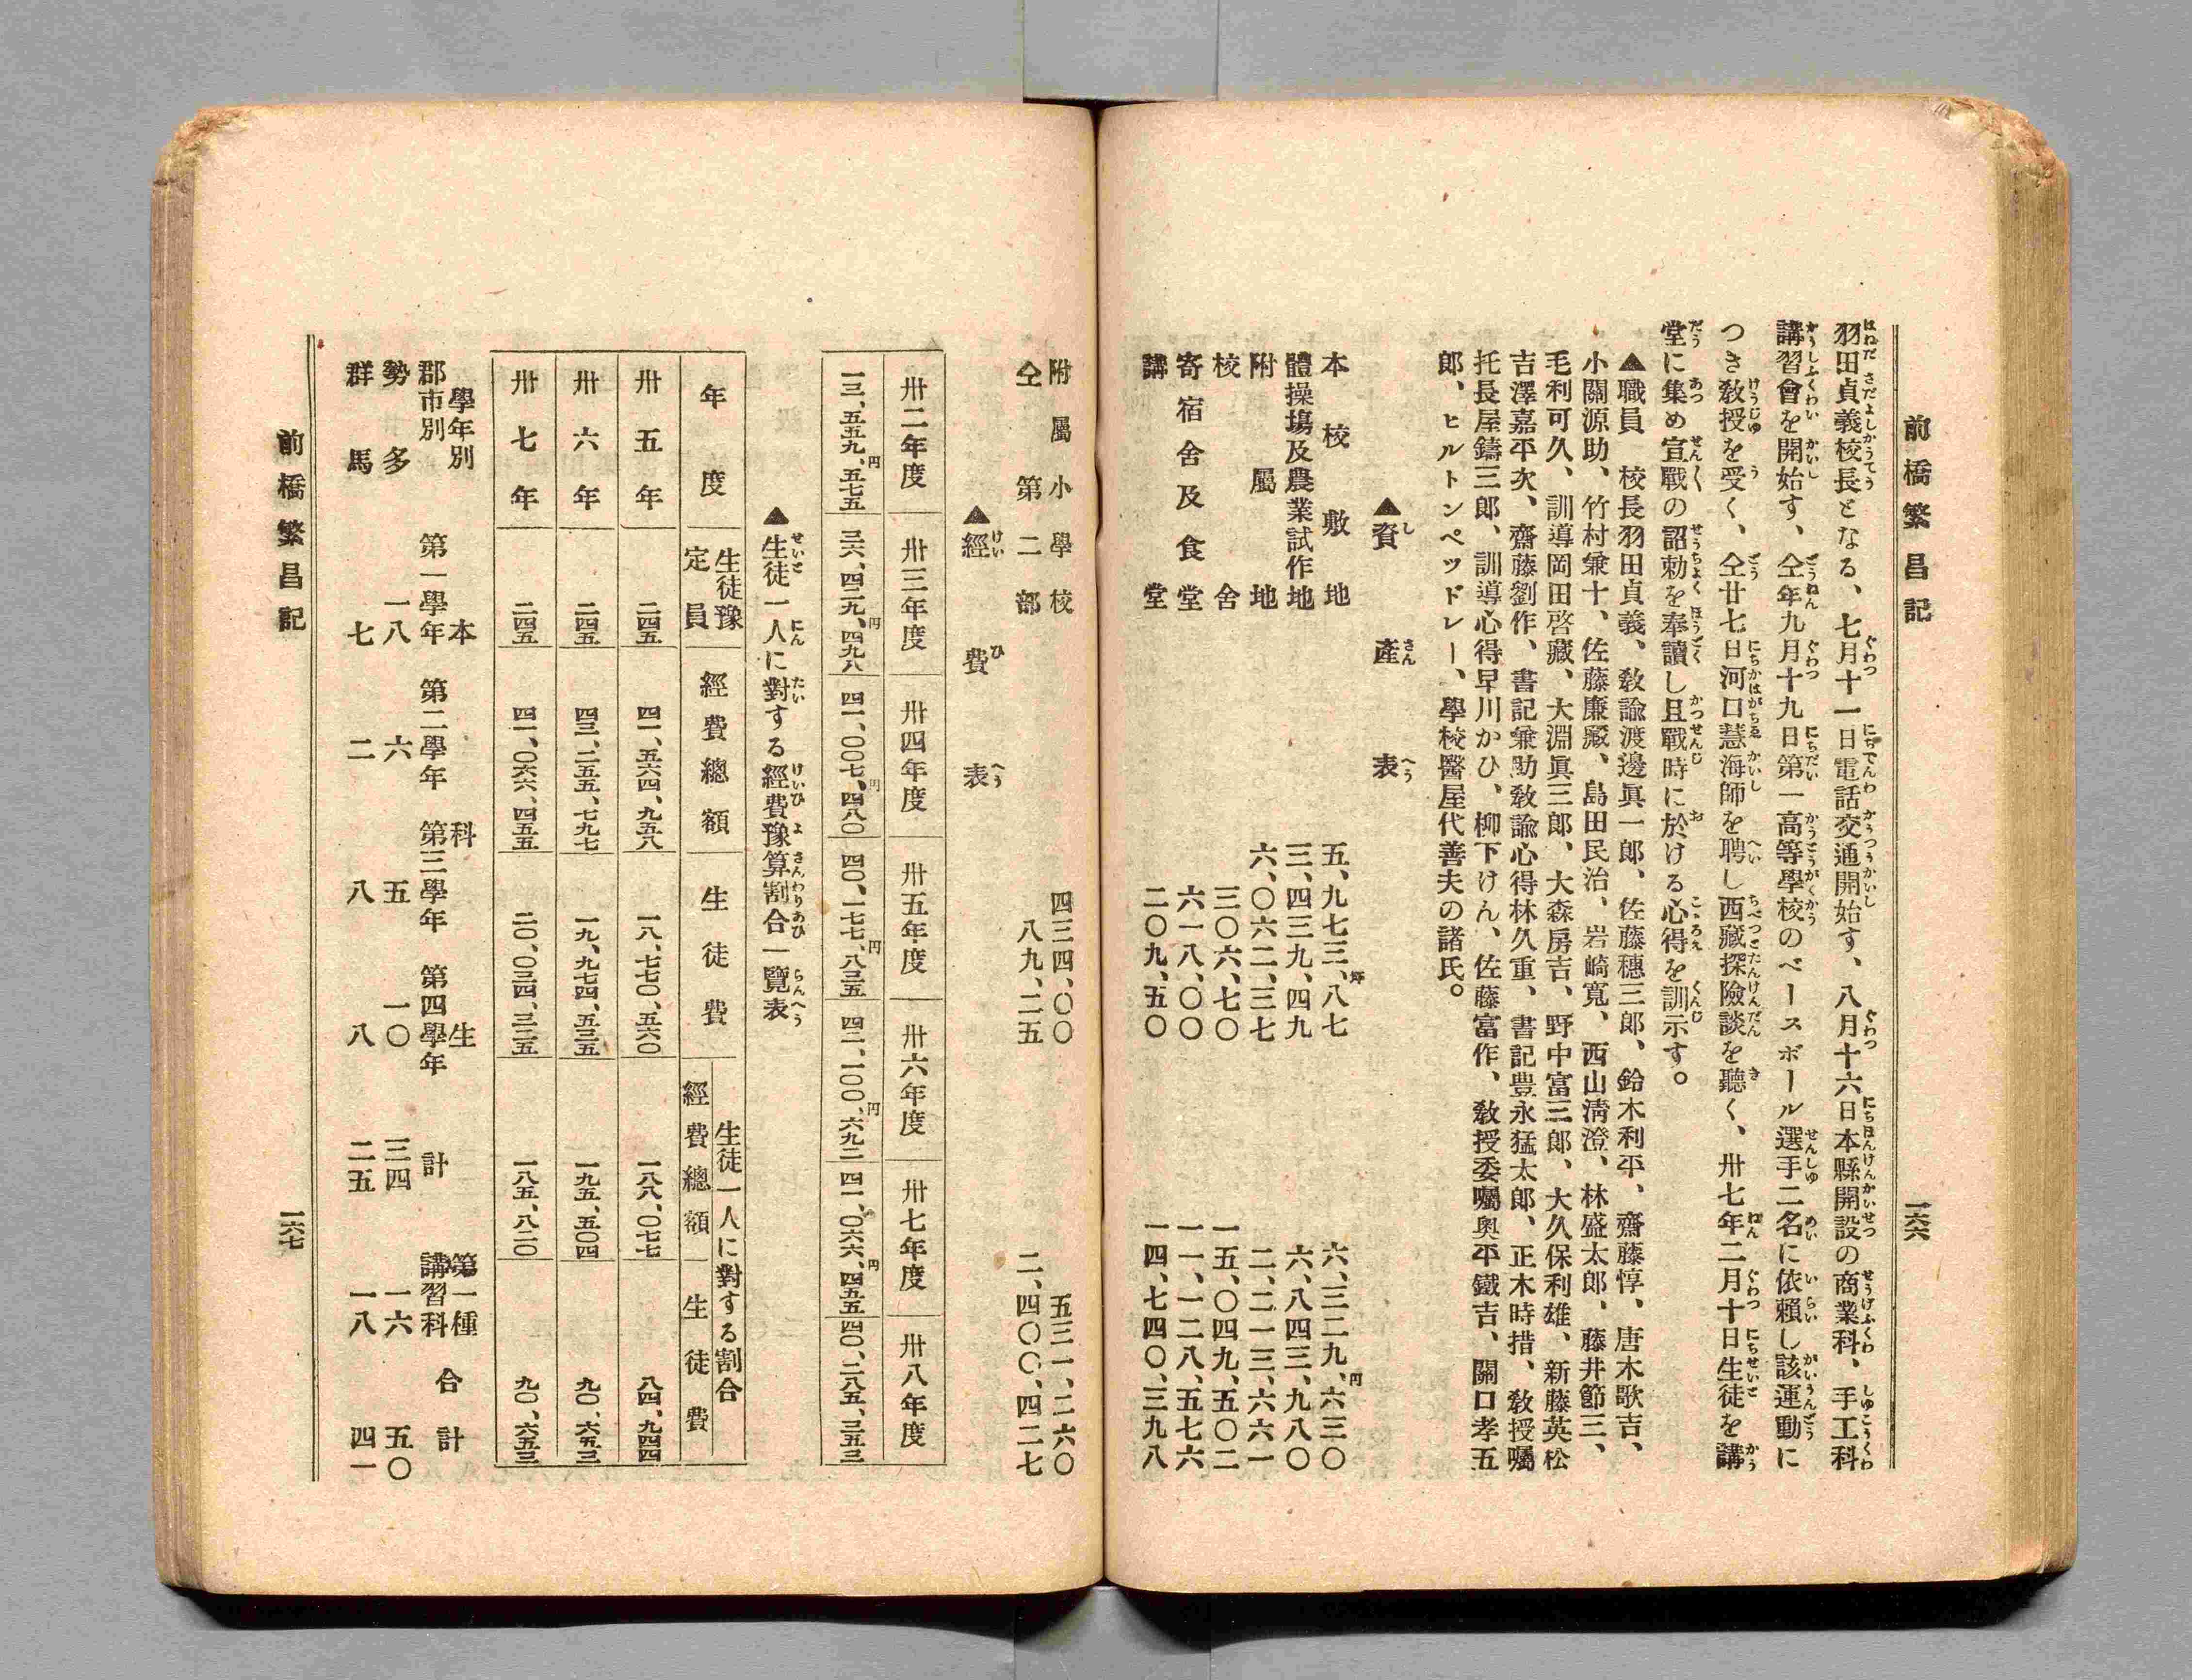 前橋繁昌記
一六六
羽田貞義校長となる、七月十一日電話交通開始す、八月十六日本縣開設の商業科、手工科
講習會を開始す、仝年九月十九日第一高等學校のベースボール選手二名に依賴し該運動に
つき敎授を受く、仝廿七日河口慧海師を聘し西藏探險談を聽く、卅七年二月十日生徒を講
堂に集め宣戰の詔勅を奉讀し且戰時に於ける心得を訓示す。
▲職員　校長羽田貞義、敎諭渡邊眞一郎、佐藤穗三郎、鈴木利平、齋藤惇、唐木歌吉、
小關源助、竹村兼十、佐藤廉殿、島田民治、岩崎寬、西山淸澄、林盛太郎、藤井節三、
毛利可久、訓導岡田啓藏、大淵眞三郎、大森房吉、野中富三郎、大久保利雄、新藤英松
吉澤嘉平次、齋藤劉作、書記兼助敎諭心得林久重、書記豊永猛太郎、正木時措、敎授囑
托長屋鑄三郎、訓導心得早川かひ、柳下けん、佐藤富作、敎授委囑奥平鐵吉、關口孝五
郎、ヒルトンペッドレー、學校醫屋代善夫の諸氏。
▲資產表
本校敷地　五、九七三、坪八七　六、三二九、円六三〇
體操塲及農業試作地　三、四三九、四九　六、八四三、九八〇
附屬地　六、〇六二、三七　二、二一三、六六一
校舍　三〇六、七〇　一五、〇四九、五〇二
寄宿舍及食堂　六一八、〇〇　一一、一二八、五七六
講堂　二〇九、五〇　一四、七四〇、三九八
附屬小學校　四三四、〇〇　五三一、二六〇
仝第二部　八九、二五　二、四〇〇、四二七
▲經費表
卅二年度　卅三年度　卅四年度　卅五年度　卅六年度　卅七年度　卅八年度
一三、五五九、円五七五　三六、四二九、円四九八　四一、〇〇七、円四八〇　四〇、一七七、円八三五　四二、一〇〇、円六九二　四一、〇六六、円四五五　四〇、二八五、三五三
▲生徒一人に對する經費豫算割合一覽表
年度　生徒豫定員　經費總額　生徒費　生徒一人に對する割合　經費總額　生徒費
卅五年　二四五　四一、五六四、九五八　一八、七七〇、五六〇　一八八、〇七七　八四、九四四
卅六年　二四五　四三、二五五、七九七　一九、九七四、五三五　一九五、五〇四　九〇、六五三
卅七年　二四五　四一、〇六六、四五五　二〇、〇三四、三二五　一八五、八二〇　九〇、六五三
學年別　本科生　第一種
郡市別　第一學年　第二學年　第三學年　第四學年　計　講習科　合計
勢多　一八　六　五　一〇　三四　一六　五〇
群馬　七　二　八　八　二五　一八　四一
前橋繁昌記
一六七